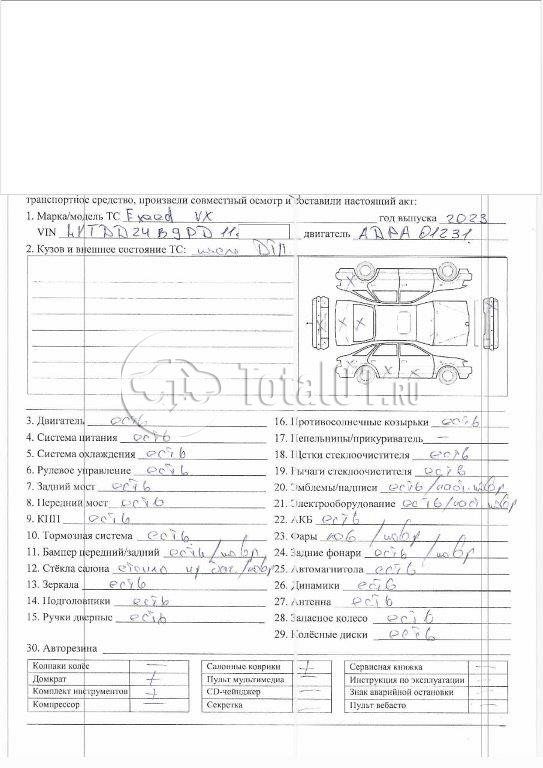 транспортное средство, произвели совместный осмотр и составили настоящий акт:
1. Марка/модель ТС Exeed VX год выпуска 2023
VIN двигатель
2. Кузов и внешнее состояние ТС: после ДТП
Total01.RU
3. Двигатель есть
4. Система питания есть
5. Система охлаждения есть
6. Рулевое управление есть
7. Задний мост есть
8. Передний мост есть
9. КПП есть
10. Тормозная система есть
11. Бампер передний/задний есть/повр
12. Стёкла салона /повр
13. Зеркала есть
14. Подголовники есть
15. Ручки дверные есть
16. Противосолнечные козырьки есть
17. Пепельницы/прикуриватель —
18. Щетки стеклоочистителя есть
19. Рычаги стеклоочистителя есть
20. Эмблемы/надписи есть/част. повр
21. Электрооборудование есть/част повр
22. АКБ есть
23. Фары /повр
24. Задние фонари есть/повр
25. Автомагнитола есть
26. Динамики есть
27. Антенна есть
28. Запасное колесо есть
29. Колёсные диски есть
30. Авторезина
Колпаки колёс —
Домкрат +
Комплект инструментов +
Компрессор —
Салонные коврики +
Пульт мультимедиа —
CD-чейнджер —
Секретка —
Сервисная книжка —
Инструкция по эксплуатации —
Знак аварийной остановки —
Пульт вебасто —